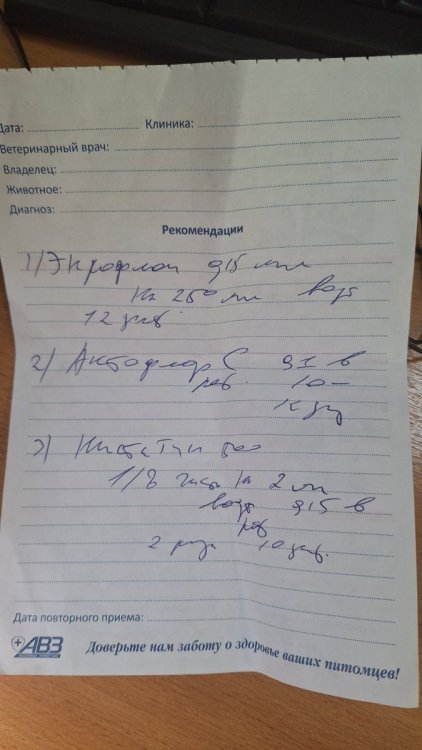 Дата:
Клиника:
Ветеринарный врач:
Владелец:
Животное:
Диагноз:
Рекомендации
1) Энрофлон 0,15 мл
на 250 мл воды
12 дней
2) Актофлор С 0,1 в
рот 10-
3) Нистатин 500
1/8 табл на 2 мл
воды 0,15 в
рот
2 раза 10 дней.
Дата повторного приема:
АВЗ
Доверьте нам заботу о здоровье ваших питомцев!